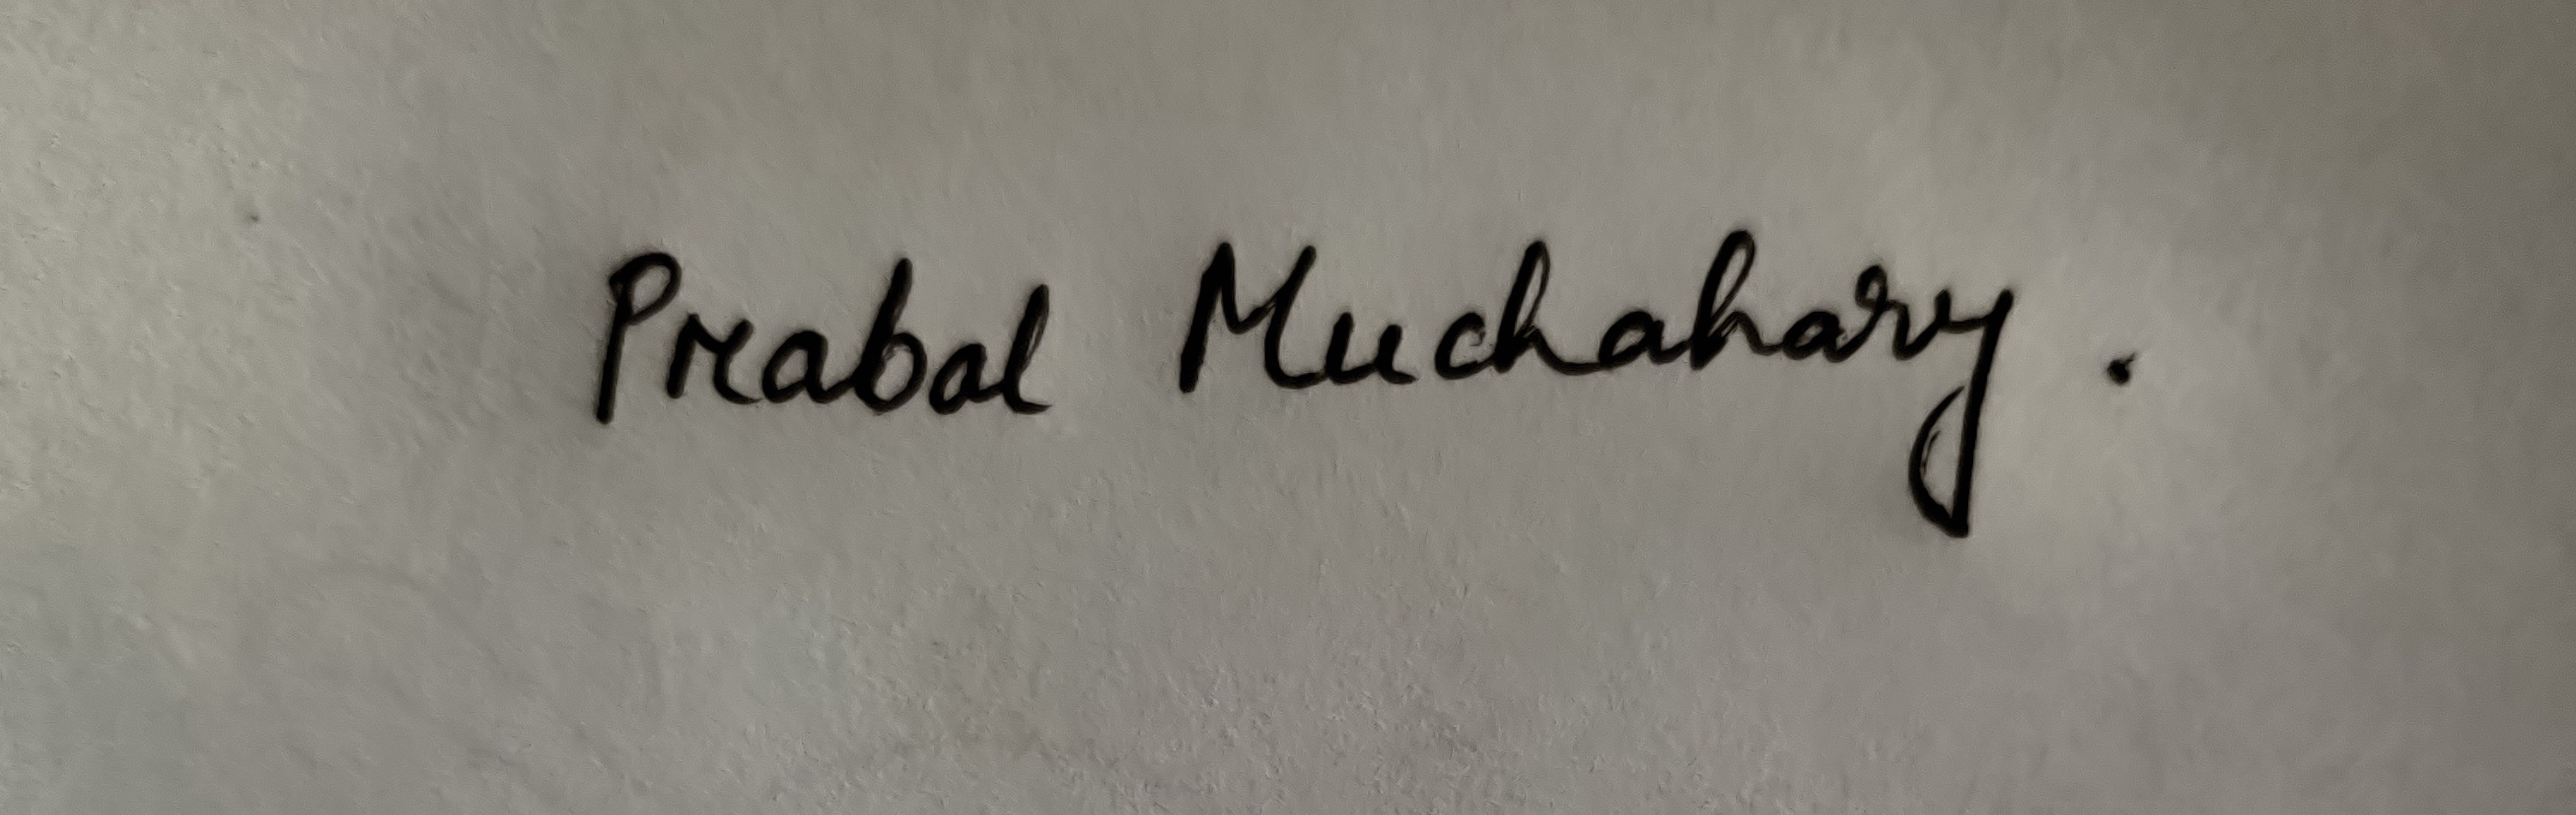 Prabal Muchahary.